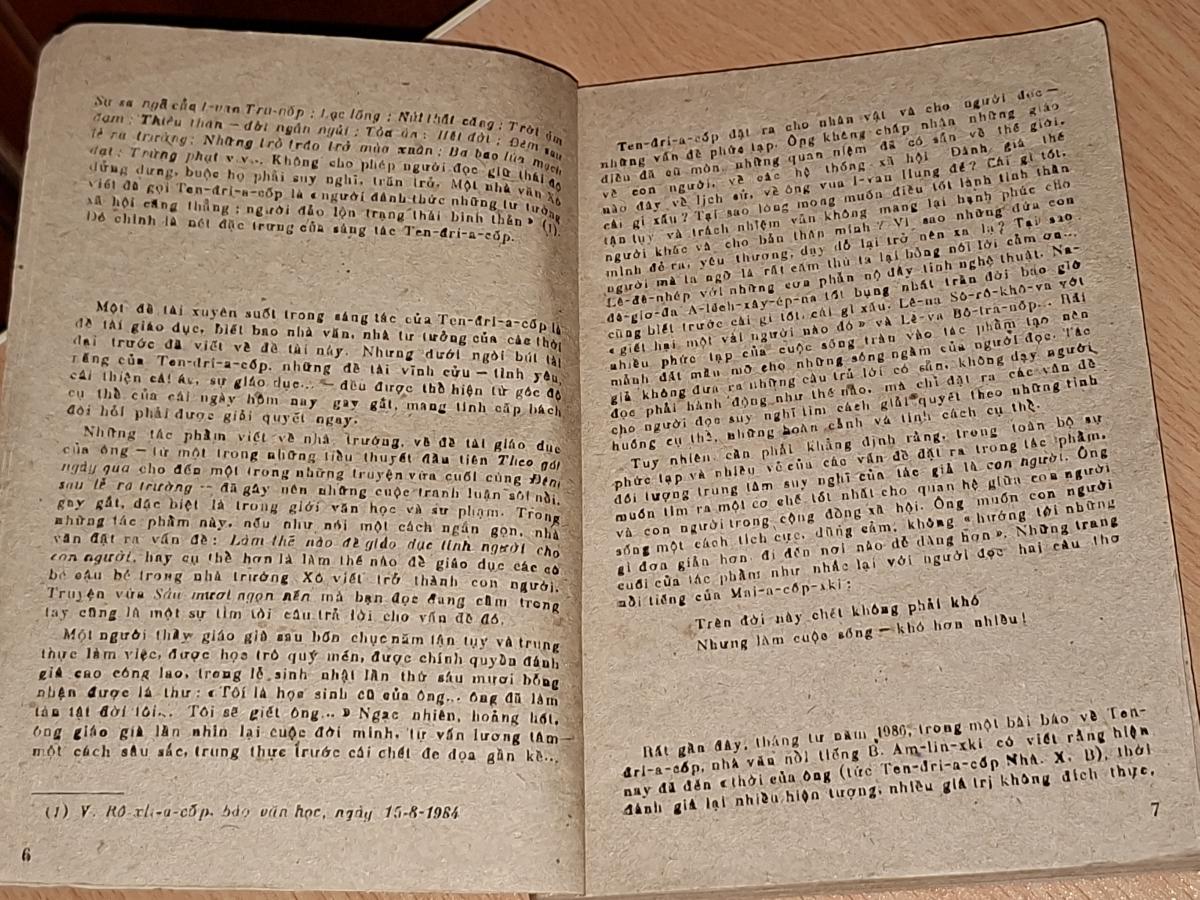 Sự sa ngã của I-van Tru-nốp ; Lạc lõng ; Nút thắt căng ; Trời ảm
đạm ; Thiêu thân — đời ngắn ngủi ; Tòa án ; Hết đời ; Đêm sau
lễ ra trường ; Những trò tráo trở mùa xuân ; Ba bao lúa mạch
dại ; Trừng phạt v.v... Không cho phép người đọc giữ thái độ
dửng dưng, buộc họ phải suy nghĩ, trăn trở. Một nhà văn Xô
viết đã gọi Ten-đri-a-cốp là « người đánh thức những tư tưởng
xã hội căng thẳng ; người đảo lộn trạng thái bình thản » (1).
Đó chính là nét đặc trưng của sáng tác Ten-đri-a-cốp.
Một đề tài xuyên suốt trong sáng tác của Ten-đri-a-cốp là
đề tài giáo dục, biết bao nhà văn, nhà tư tưởng của các thời
đại trước đã viết về đề tài này. Nhưng dưới ngòi bút tài
năng của Ten-đri-a-cốp, những đề tài vĩnh cửu — tình yêu,
cái thiện cái ác, sự giáo dục... — đều được thể hiện từ góc độ
cụ thể của cái ngày hôm nay gay gắt, mang tính cấp bách
đòi hỏi phải được giải quyết ngay.
Những tác phẩm viết về nhà trường, về đề tài giáo dục
của ông — từ một trong những tiểu thuyết đầu tiên Theo gót
ngày qua cho đến một trong những truyện vừa cuối cùng Đêm
sau lễ ra trường — đã gây nên những cuộc tranh luận sôi nổi,
gay gắt, đặc biệt là trong giới văn học và sư phạm. Trong
những tác phẩm này, nếu như nói một cách ngắn gọn, nhà
văn đặt ra vấn đề : Làm thế nào để giáo dục tính người cho
con người, hay cụ thể hơn là làm thế nào để giáo dục các cô
bé cậu bé trong nhà trường Xô viết trở thành con người.
Truyện vừa Sáu mươi ngọn nến mà bạn đọc đang cầm trong
tay cũng là một sự tìm tòi câu trả lời cho vấn đề đó.
Một người thầy giáo già sau bốn chục năm tận tụy và trung
thực làm việc, được học trò quý mến, được chính quyền đánh
giá cao công lao, trong lễ sinh nhật lần thứ sáu mươi bỗng
nhận được lá thư : « Tôi là học sinh cũ của ông... ông đã làm
tàn tật đời tôi... Tôi sẽ giết ông... » Ngạc nhiên, hoảng hốt,
ông giáo già lần nhìn lại cuộc đời mình, tự vấn lương tâm
một cách sâu sắc, trung thực trước cái chết đe dọa gần kề...
(1) V. Rô-xli-a-cốp. báo văn học, ngày 15-8-1984
6
Ten-đri-a-cốp đặt ra cho nhân vật và cho người đọc —
những vấn đề phức tạp. Ông không chấp nhận những giáo
điều đã cũ mòn, những quan niệm đã có sẵn về thế giới,
về con người, về các hệ thống xã hội. Đánh giá thế
nào đây về lịch sử, về ông vua I-van Hung đế? Cái gì tốt,
cái gì xấu ? Tại sao lòng mong muốn điều tốt lành tinh thần
tận tụy và trách nhiệm vẫn không mang lại hạnh phúc cho
người khác và cho bản thân mình ? Vì sao những đứa con
mình đẻ ra, yêu thương, dạy dỗ lại trở nên xa lạ? Tại sao
người mà ta ngỡ là rất căm thù ta lại bỗng nói lời cảm ơn...
Lê-đê-nhép với những cơn phẫn nộ đầy tính nghệ thuật. Na-
đê-giơ-đa A-lếch-xây-ép-na tốt bụng nhất trần đời bao giờ
cũng biết trước cái gì tốt, cái gì xấu. Lê-na Sô-rô-khô-va với
« giết hại một vài người nào đó » và Lê-va Bô-tra-nốp... Hãi
nhiều phức tạp của cuộc sống tràn vào tác phẩm tạo nên
mảnh đất màu mỡ cho những sóng ngầm của người đọc. Tác
giả không đưa ra những câu trả lời có sẵn, không dạy người
đọc phải hành động như thế nào, mà chỉ đặt ra các vấn đề
cho người đọc suy nghĩ tìm cách giải quyết theo những tình
huống cụ thể, những hoàn cảnh và tính cách cụ thể.
Tuy nhiên, cần phải khẳng định rằng, trong toàn bộ sự
phức tạp và nhiều vẻ của các vấn đề đặt ra trong tác phẩm,
đối tượng trung tâm suy nghĩ của tác giả là con người. Ông
muốn tìm ra một cơ chế tốt nhất cho quan hệ giữa con người
và con người trong cộng đồng xã hội. Ông muốn con người
sống một cách tích cực, dũng cảm, không « hướng tới những
gì đơn giản hơn, đi đến nơi nào dễ dàng hơn ». Những trang
cuối của tác phẩm như nhắc lại với người đọc hai câu thơ
nổi tiếng của Mai-a-cốp-xki :
Trên đời này chết không phải khó
Nhưng làm cuộc sống — khó hơn nhiều !
Rất gần đây, tháng tư năm 1986, trong một bài báo về Ten-
đri-a-cốp, nhà văn nổi tiếng B. Am-lin-xki có viết rằng hiện
nay đã đến « thời của ông (tức Ten-đri-a-cốp Nhà. X. B), thời
đánh giá lại nhiều hiện tượng, nhiều giá trị không đích thực,
7